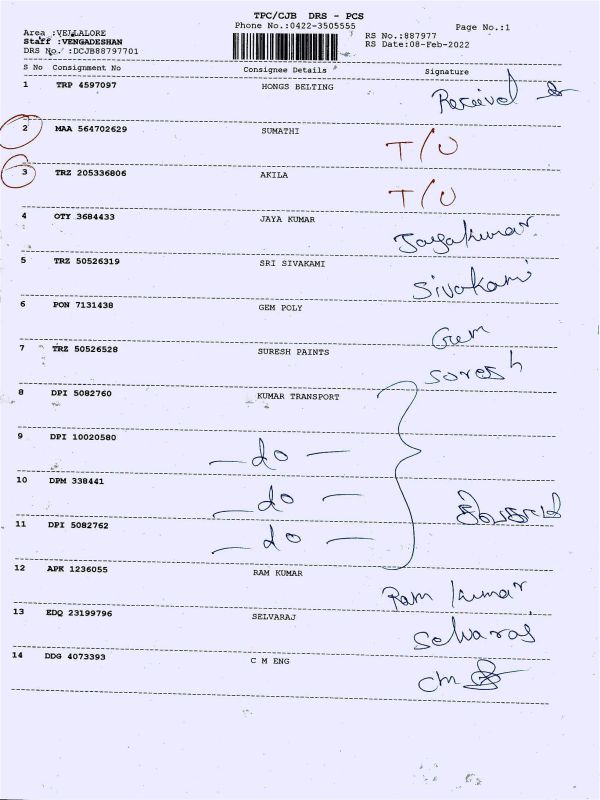 TPC/CJB DRS - PCS
Phone No.:0422-3505555 Page No.:1
Area :VELLALORE RS No.:887977
Staff :VENGADESHAN RS Date:08-Feb-2022
DRS No. :DCJB88797701
S No Consignment No Consignee Details Signature
1 TRP 4597097 HONGS BELTING Received
2 MAA 564702629 SUMATHI T/U
3 TRZ 205336806 AKILA T/U
4 OTY 3684433 JAYA KUMAR Jayakumar
5 TRZ 50526319 SRI SIVAKAMI Sivakami
6 PON 7131438 GEM POLY Gem
7 TRZ 50526528 SURESH PAINTS Soresh
8 DPI 5082760 KUMAR TRANSPORT
9 DPI 10020580 — do —
10 DPM 338441 — do —
11 DPI 5082762 — do —
12 APK 1236055 RAM KUMAR Ram kumar
13 EDQ 23199796 SELVARAJ Selvaraj
14 DDG 4073393 C M ENG cm